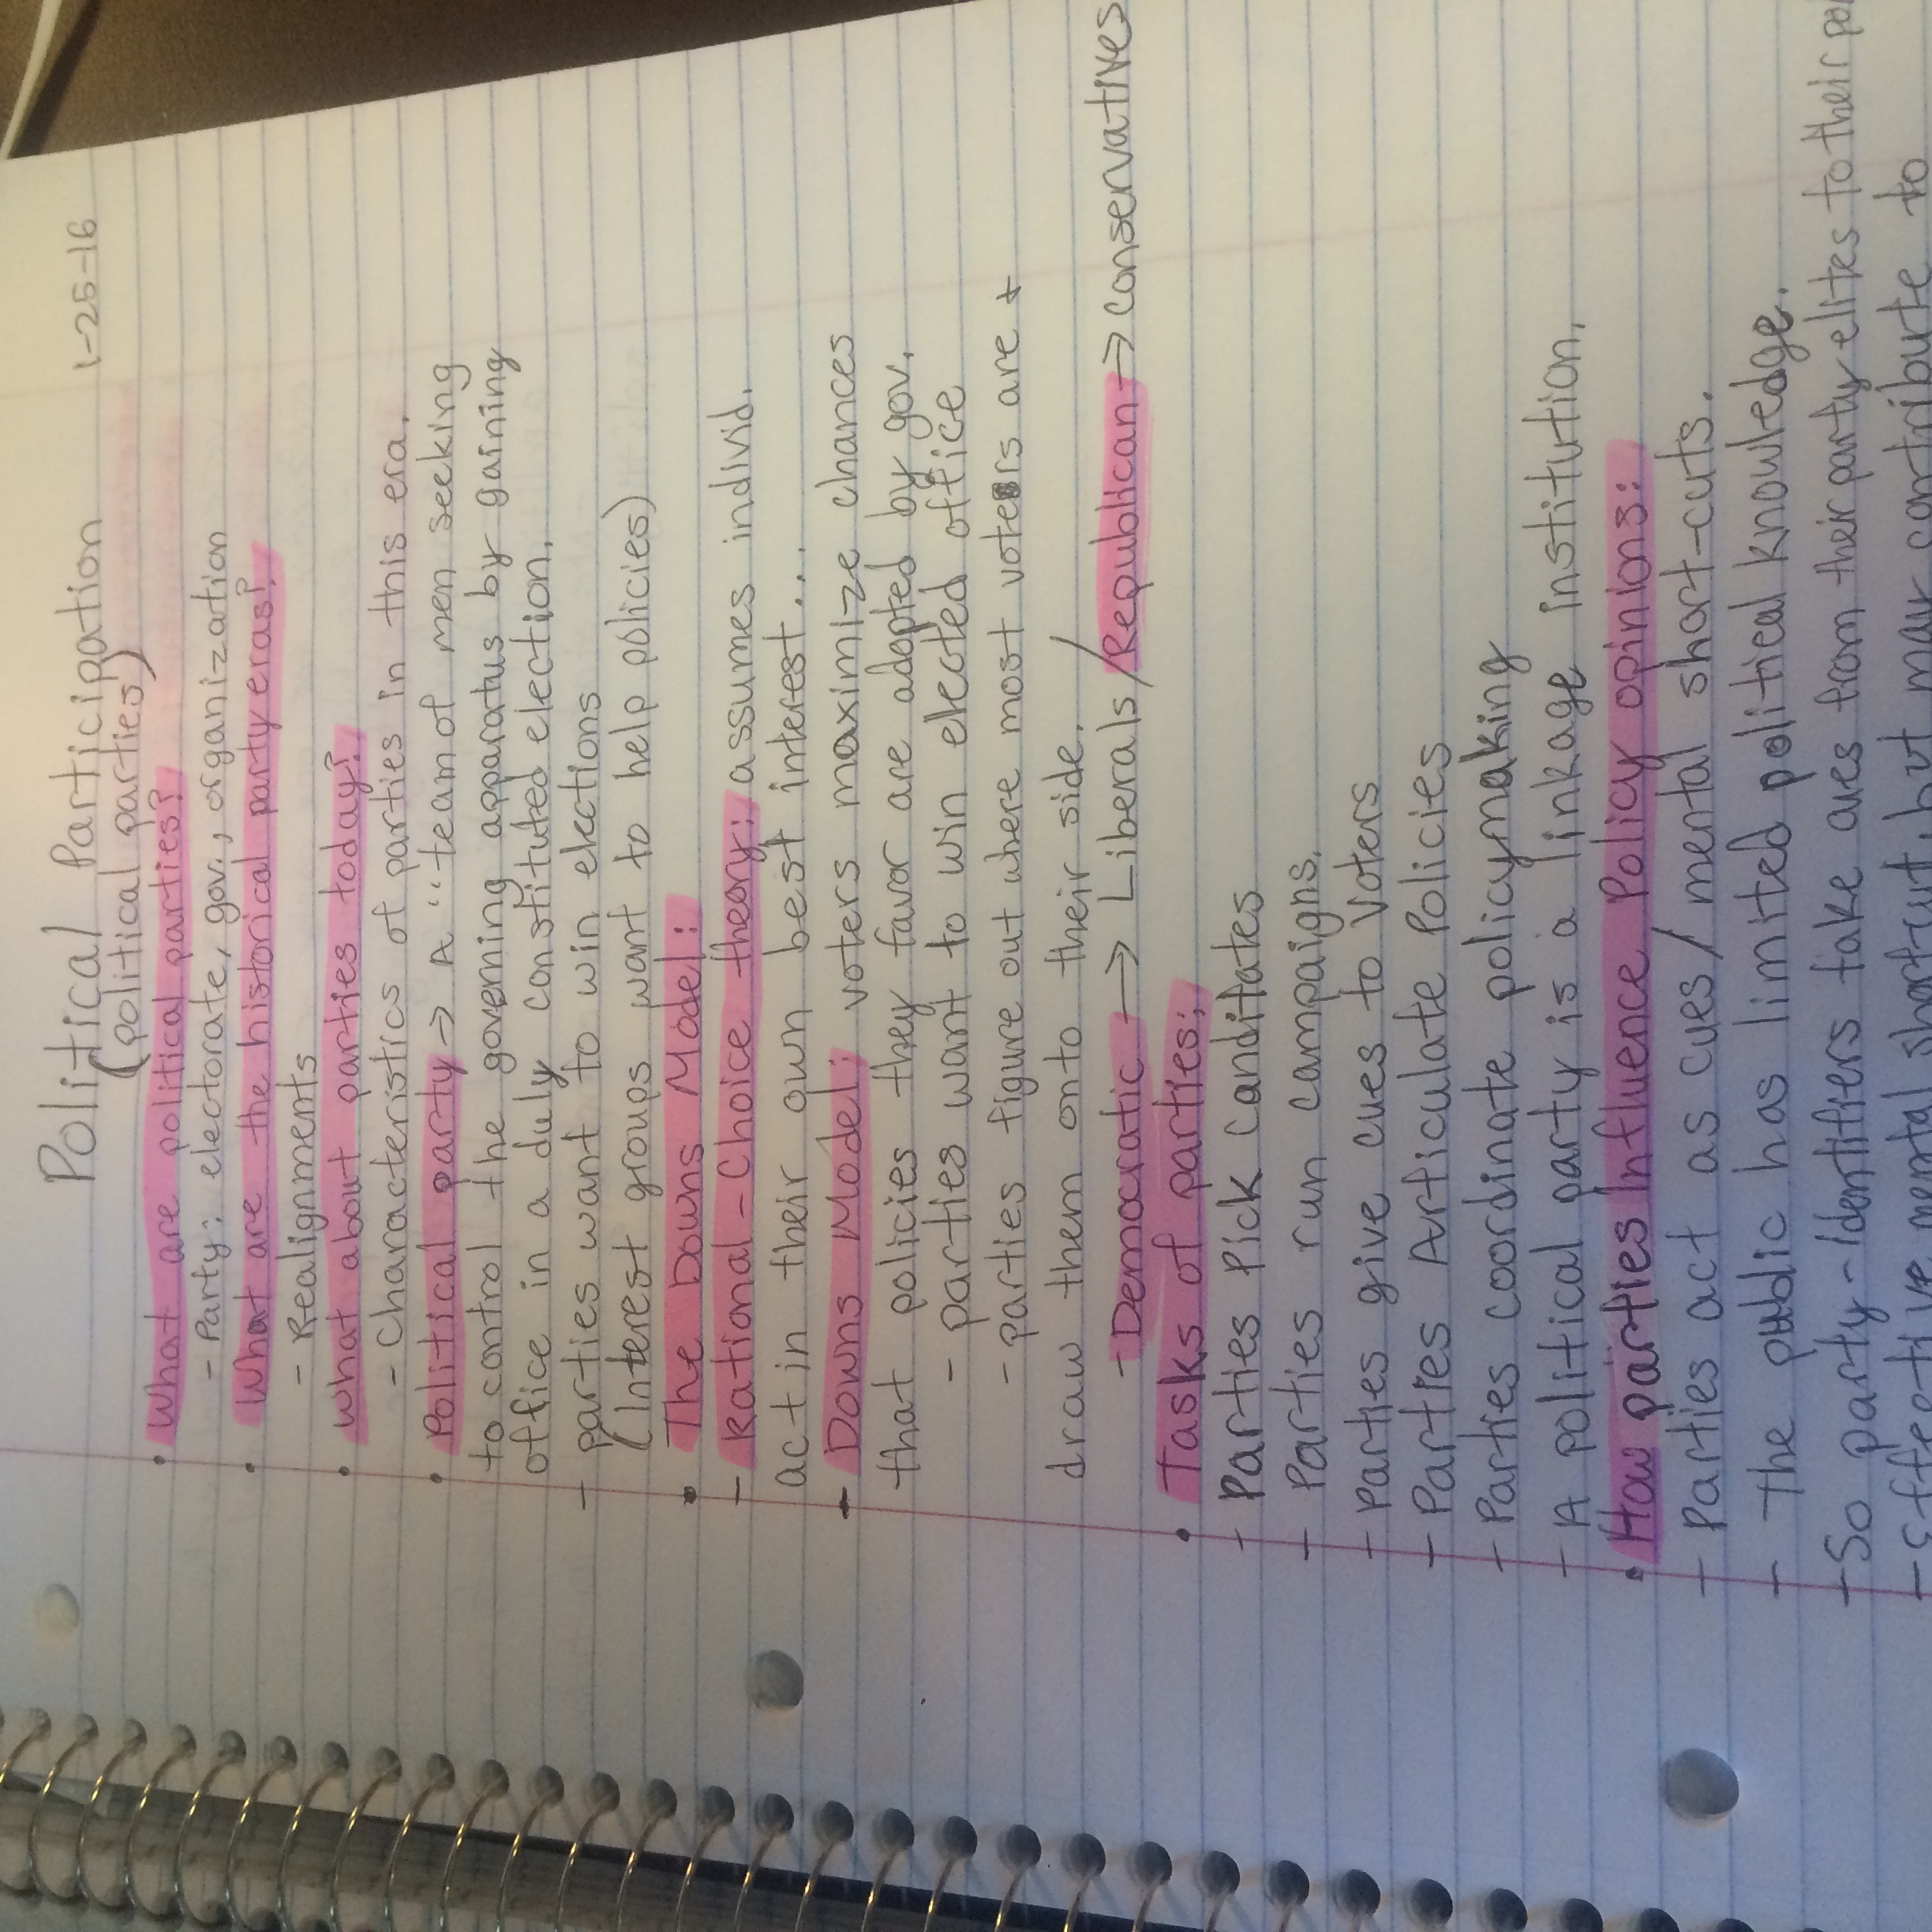 Political Participation 1-25-16
(political parties)
• What are political parties?
- Party: electorate, gov., organization
• What are the historical party eras?
- Realignments
• What about parties today?
- Characteristics of parties in this era.
• Political party → A "team of men seeking
to control the governing apparatus by gaining
office in a duly constituted election.
- parties want to win elections
(Interest groups want to help policies)
• The Downs Model:
- Rational-Choice theory: assumes individ.
act in their own best interest...
- Downs Model: voters maximize chances
that policies they favor are adopted by gov.
- parties want to win elected office
- parties figure out where most voters are +
draw them onto their side.
- Democratic → Liberals / Republican → conservatives
• Tasks of parties:
- Parties Pick Canditates
- Parties run campaigns.
- Parties give cues to Voters
- Parties Articulate Policies
- Parties coordinate policymaking
- A political party is a linkage institution.
• How parties Influence Policy opinions:
- Parties act as cues / mental short-cuts.
- The public has limited political knowledge.
- So party-Identifiers take cues from their party elites to their
- Effective mental shortcut, but may contribute to